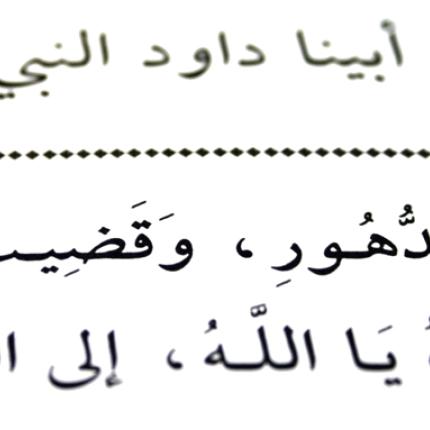 أبينا داود النبي
دُّهُورِ ، وَقَضِيـ
يَا اللَّـهُ ، إلى